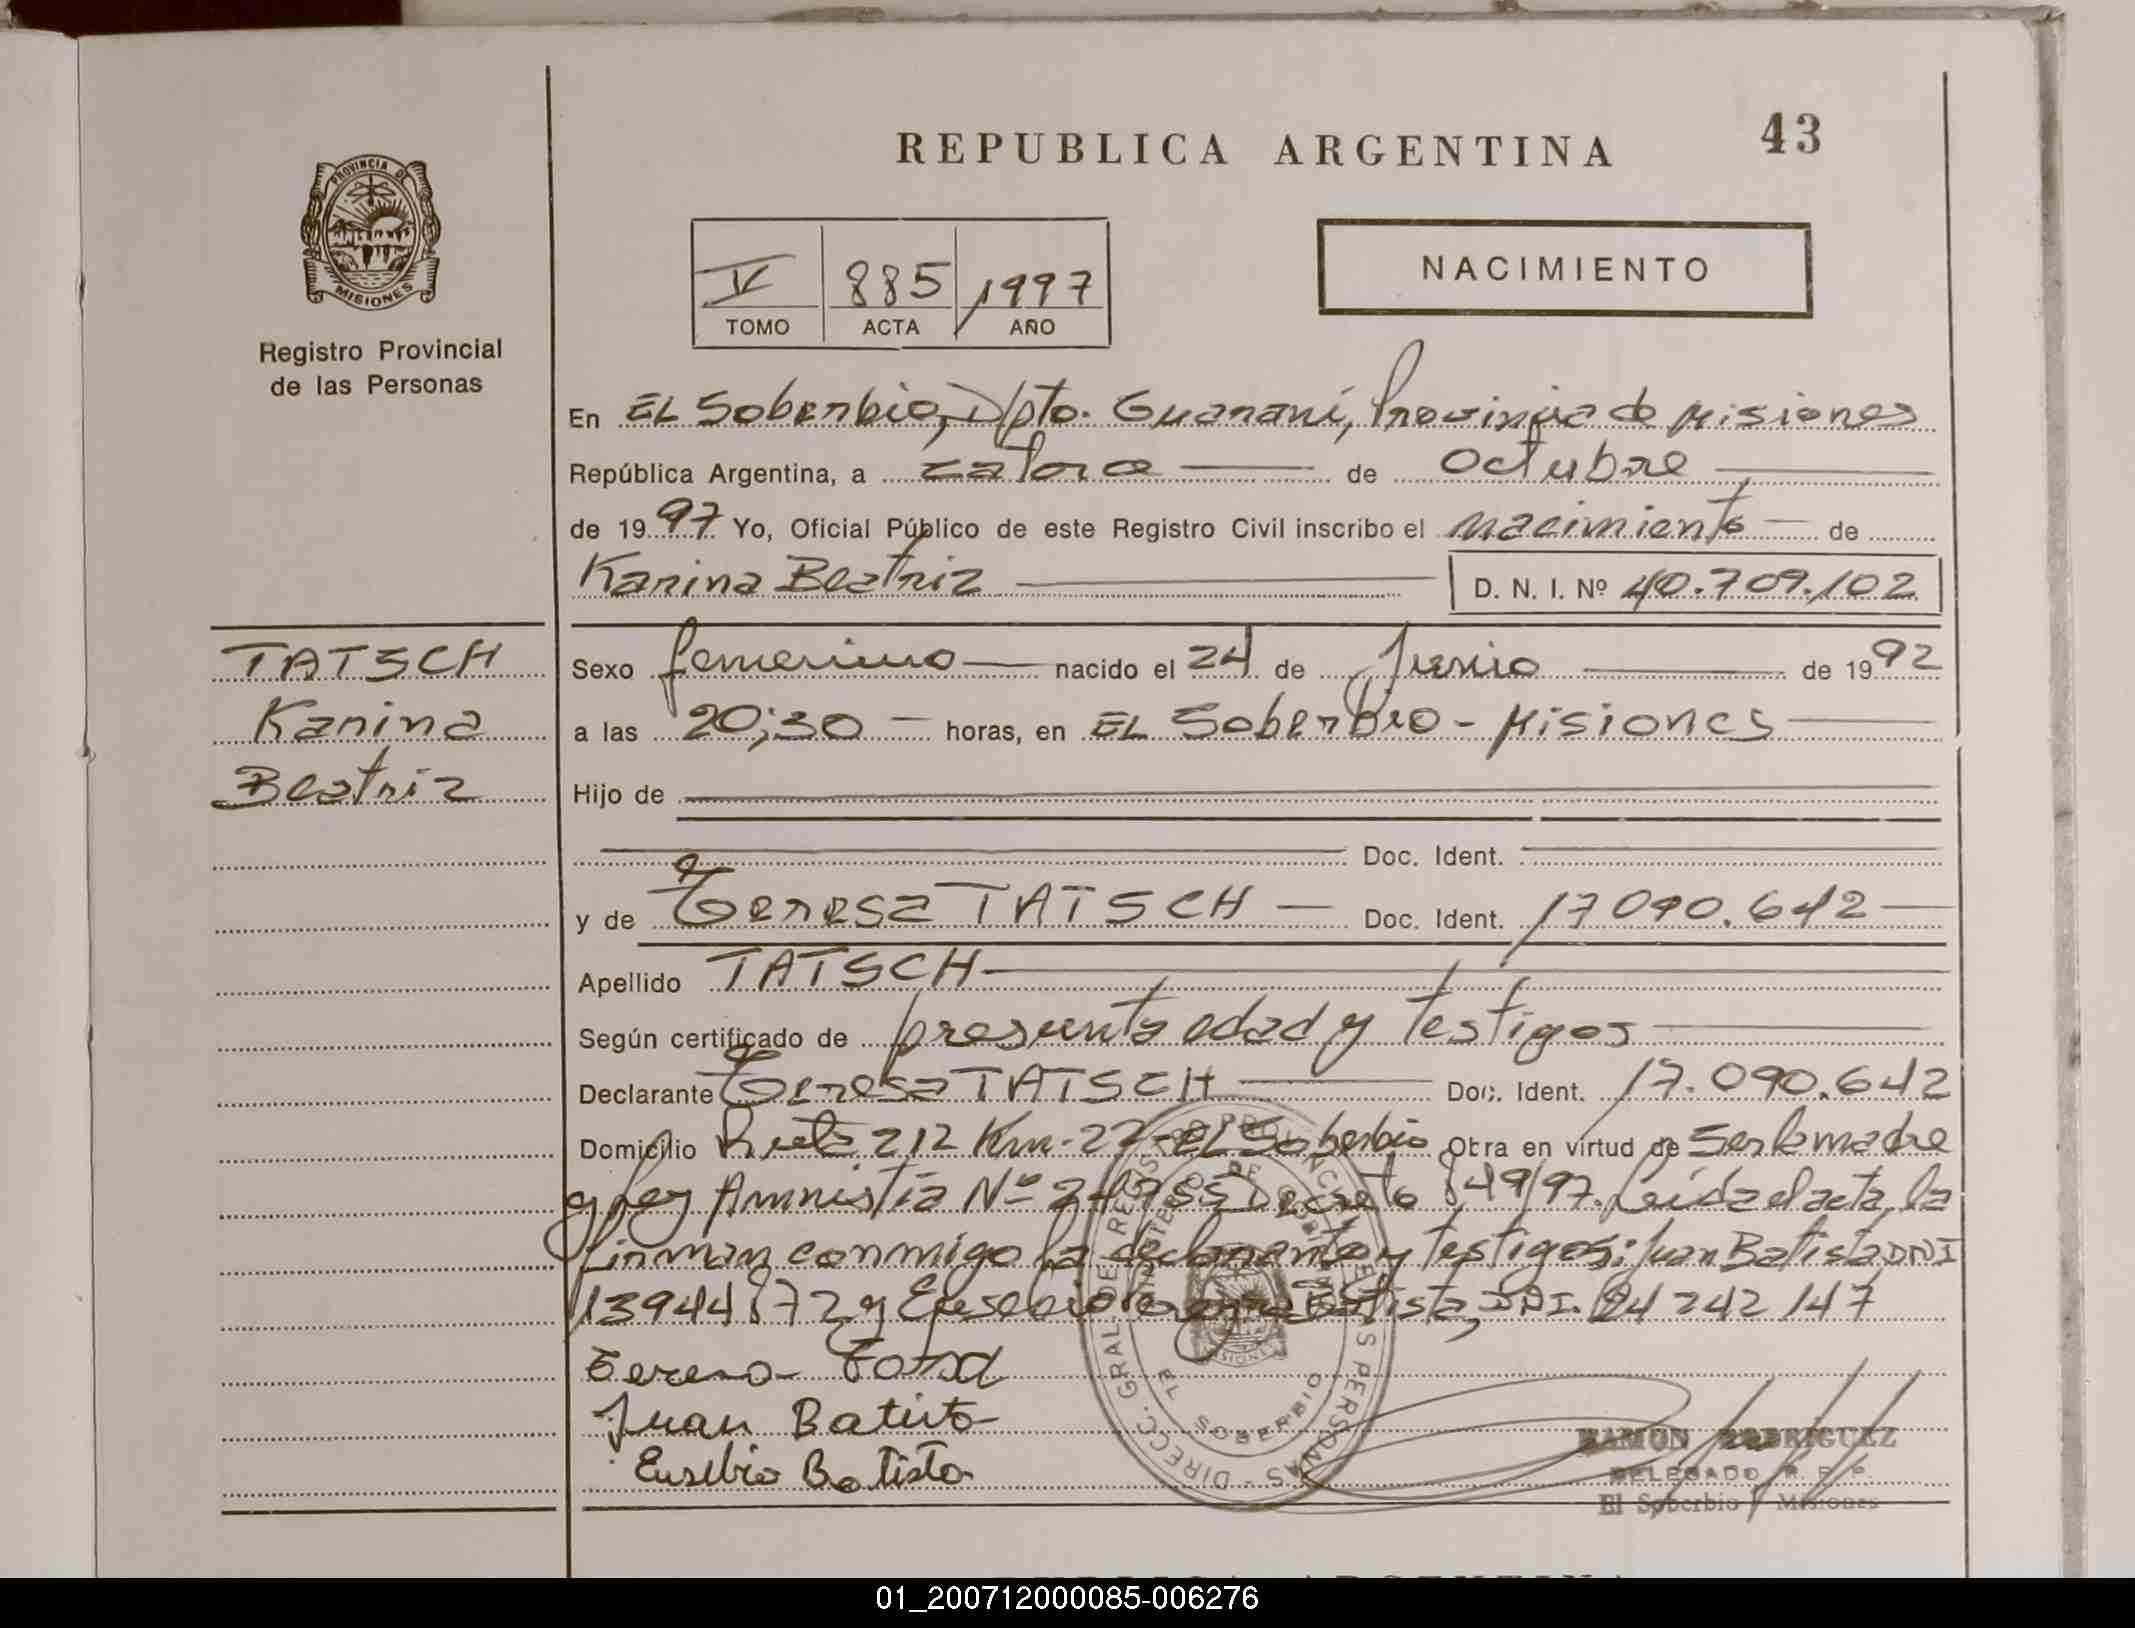 REPUBLICA ARGENTINA
43
PROVINCIA DE
MISIONES
Registro Provincial
de las Personas
V 885 1997
TOMO ACTA AÑO
NACIMIENTO
En EL Soberbio, Dpto. Guaraní, Provincia de Misiones
República Argentina, a catorce de Octubre
de 1997 Yo, Oficial Público de este Registro Civil inscribo el nacimiento de
Karina Beatriz D. N. I. Nº 40.709.102
TATSCH
Karina
Beatriz
Sexo femenino nacido el 24 de Junio de 1992
a las 20;30 horas, en EL Soberbio - Misiones
Hijo de
Doc. Ident.
y de Teresa TATSCH Doc. Ident. 17090.642
Apellido TATSCH
Según certificado de presunta edad y testigos
Declarante Teresa TATSCH Doc. Ident. 17.090.642
Domicilio Ruta 212 Km. 27 - EL Soberbio Obra en virtud de Ser la madre
y Ley Amnistía Nº 24755 Decreto 849/97. Leída el acta, la
firman conmigo la declarante y testigos: Juan Batista DNI
13944872 y Eusebio Batista, DNI. 24242147
Juan Batista
Eusebio Batista
DIRECC. GRAL. DE
PERSONAS
EL SOBERBIO
RAMON RODRIGUEZ
DELEGADO R. P. P.
El Soberbio Misiones
01_200712000085-006276